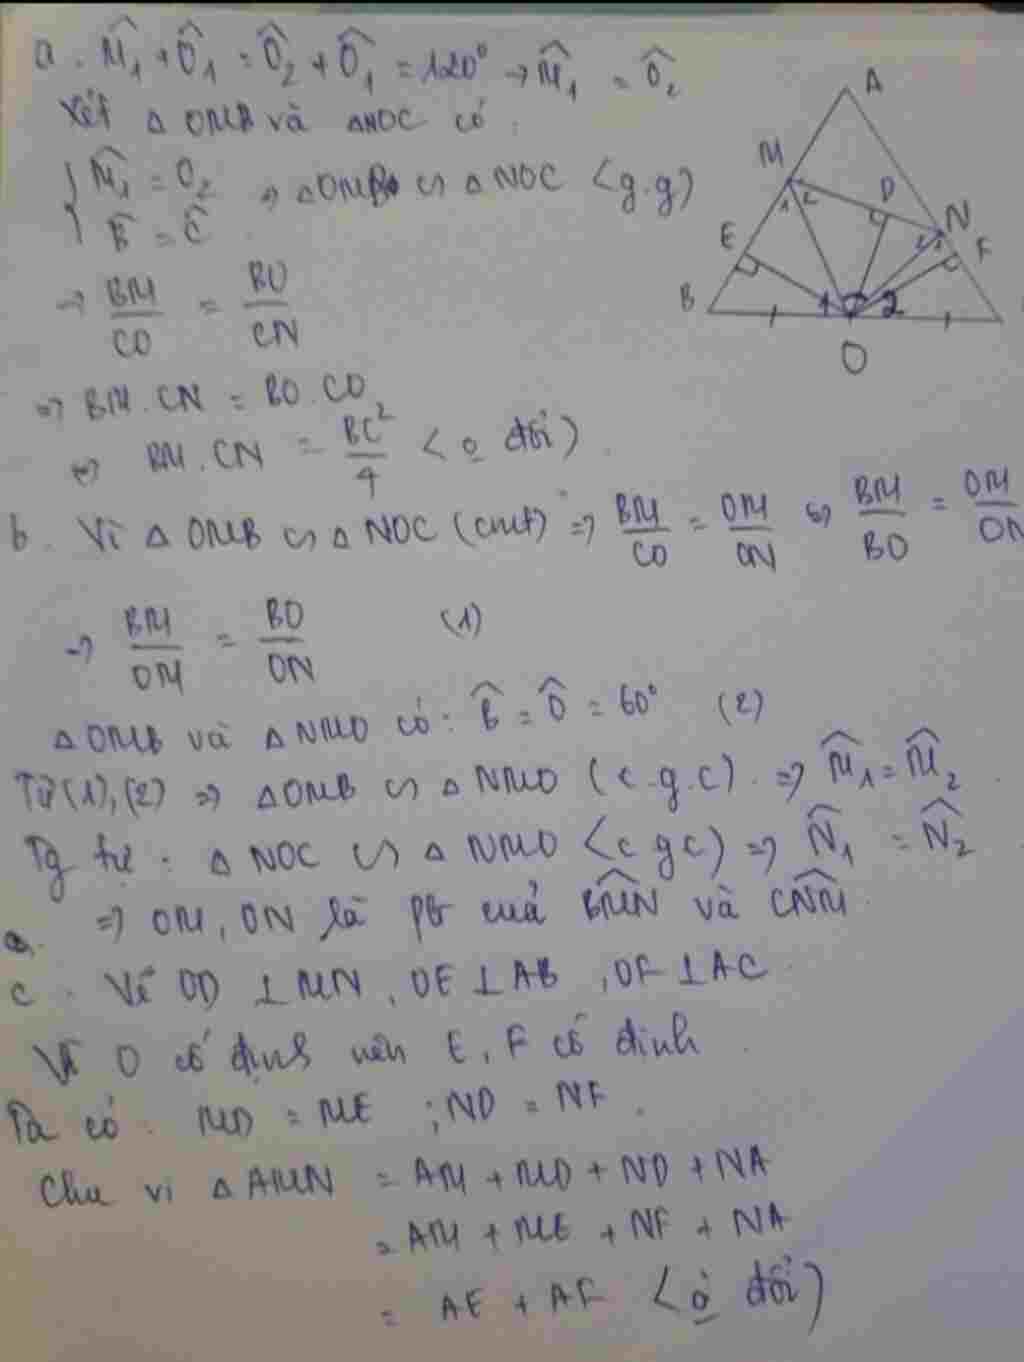 a. M̂₁ + Ô₁ = Ô₂ + Ô₁ = 120° → M̂₁ = Ô₂
Xét △OMB và △NOC có:
{ M̂₁ = O₂
{ B̂ = Ĉ ⇒ △OMB ∽ △NOC <g.g)
→ BM/CO = BO/CN
⇒ BM.CN = BO.CO
⇔ BM.CN = BC²/4 <o đổi)
b. Vì △OMB ∽ △NOC (cmt) ⇒ BM/CO = OM/ON ⇔ BM/BO = OM/ON
→ BM/OM = BO/ON (1)
△OMB và △NMO có: B̂ = Ô = 60° (2)
Từ (1), (2) ⇒ △OMB ∽ △NMO (c.g.c). ⇒ M̂₁ = M̂₂
Tg tự: △NOC ∽ △NMO <c g c) ⇒ N̂₁ = N̂₂
⇒ OM, ON là pg của BMN và CNM.
c. Vẽ OD ⊥ MN, OE ⊥ AB, OF ⊥ AC
Vì O cố định nên E, F cố định.
Ta có: MD = ME ; ND = NF.
Chu vi △AMN = AM + MD + ND + NA
= AM + ME + NF + NA
= AE + AF <o đổi)
A
M
1 2
D
N
2 1
E
F
B
1 2
O